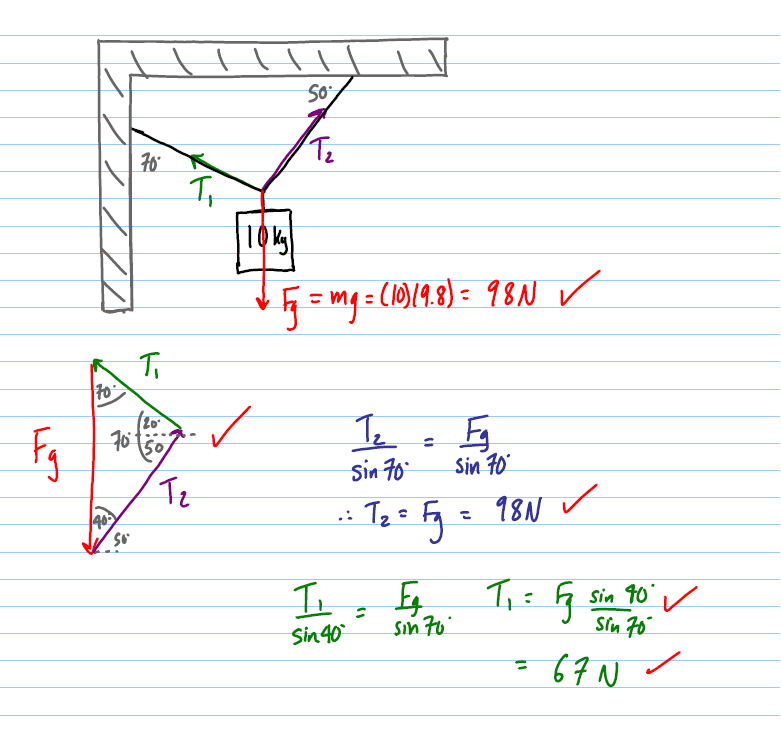 50°
70°
T₁
T₂
10 kg
Fg = mg = (10)(9.8) = 98N ✓
T₁
70°
Fg
70°
20°
50
✓
T₂
40°
50°
T₂/sin 70° = Fg/sin 70°
∴ T₂ = Fg = 98N ✓
T₁/sin 40° = Fg/sin 70° T₁ = Fg sin 40°/sin 70° ✓
= 67 N ✓